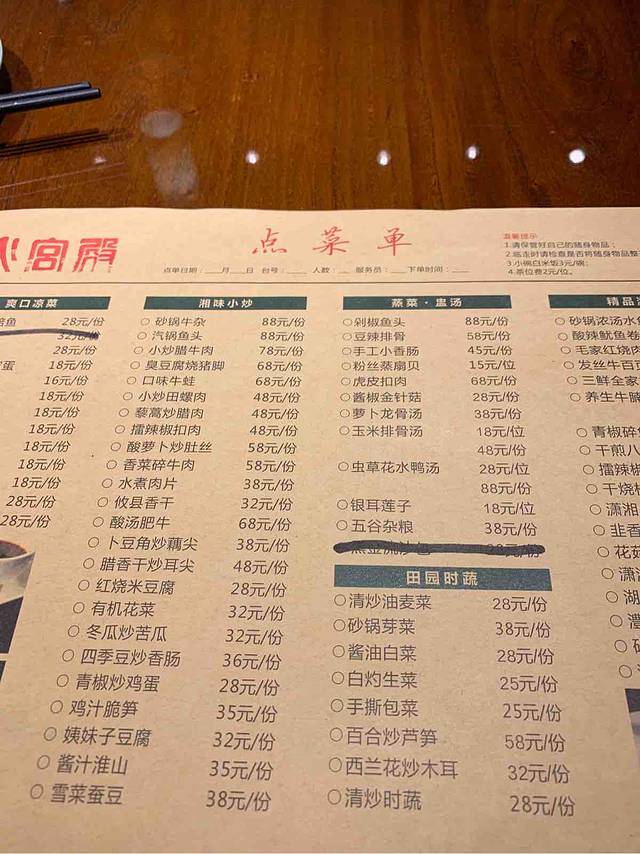 宫殿
点菜单
温馨提示
1.请保管好自己的随身物品;
2.临走时请检查是否将随身物品
3.小碗白米饭3元/碗;
4.茶位费2元/位。
点单日期:___月___日 台号:___ 人数:___ 服务员:___ 下单时间:___
爽口凉菜
鱼 28元/份
32元/份
28元/份
蛋 18元/份
16元/份
18元/份
18元/份
18元/份
18元/份
18元/份
18元/份
28元/份
28元/份
湘味小炒
砂锅牛杂 88元/份
汽锅鱼头 88元/份
小炒腊牛肉 78元/份
臭豆腐烧猪脚 68元/份
口味牛蛙 68元/份
小炒田螺肉 48元/份
藜蒿炒腊肉 48元/份
擂辣椒扣肉 48元/份
酸萝卜炒肚丝 58元/份
香菜碎牛肉 58元/份
水煮肉片 38元/份
攸县香干 32元/份
酸汤肥牛 68元/份
卜豆角炒藕尖 38元/份
腊香干炒耳尖 48元/份
红烧米豆腐 28元/份
有机花菜 32元/份
冬瓜炒苦瓜 32元/份
四季豆炒香肠 36元/份
青椒炒鸡蛋 28元/份
鸡汁脆笋 35元/份
姨妹子豆腐 32元/份
酱汁淮山 35元/份
雪菜蚕豆 38元/份
蒸菜·盅汤
剁椒鱼头 88元/份
豆辣排骨 58元/份
手工小香肠 45元/份
粉丝蒸扇贝 15元/位
虎皮扣肉 68元/份
酱椒金针菇 28元/份
萝卜龙骨汤 38元/份
玉米排骨汤 18元/位
48元/份
虫草花水鸭汤 28元/位
88元/份
银耳莲子 18元/位
五谷杂粮 38元/份
田园时蔬
清炒油麦菜 28元/份
砂锅芽菜 38元/份
酱油白菜 28元/份
白灼生菜 25元/份
手撕包菜 25元/份
百合炒芦笋 58元/份
西兰花炒木耳 32元/份
清炒时蔬 28元/份
精品
砂锅浓汤水
酸辣鱿鱼卷
毛家红烧肉
发丝牛百
三鲜全家
养生牛腩
青椒碎
干煎八
擂辣椒
干烧
潇湘
韭香
花菇
潇
湖
澧